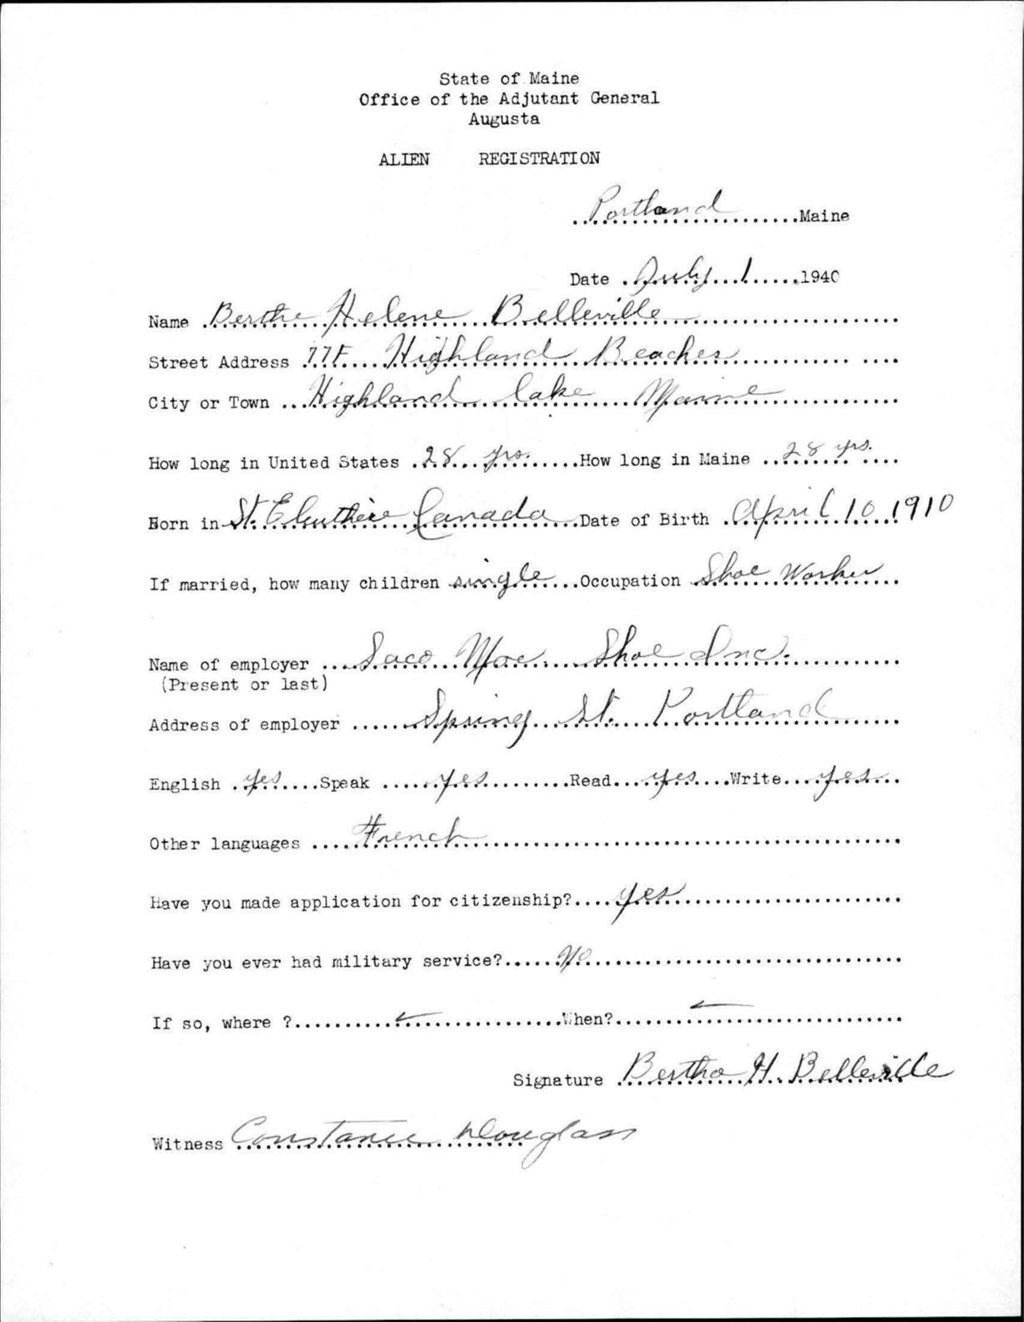 State of Maine
Office of the Adjutant General
Augusta
ALIEN REGISTRATION
Portland Maine
Date July 1 1940
Name Berthe Helene Belleville
Street Address 77F Highland Beaches
City or Town Highland Lake Maine
How long in United States 28 yrs. How long in Maine 28 yrs.
Born in St. Eleuthère Canada Date of Birth April 10 1910
If married, how many children single Occupation Shoe Worker
Name of employer Saco Moc Shoe Inc.
(Present or last)
Address of employer Spring St. Portland
English yes Speak yes Read yes Write yes
Other languages French
Have you made application for citizenship? yes
Have you ever had military service? No
If so, where ? When?
Signature Bertha H. Belleville
Witness Constance Douglass